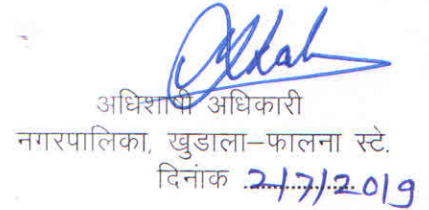 अधिशाषी अधिकारी
नगरपालिका, खुडाला–फालना स्टे.
दिनांक 2/7/2019